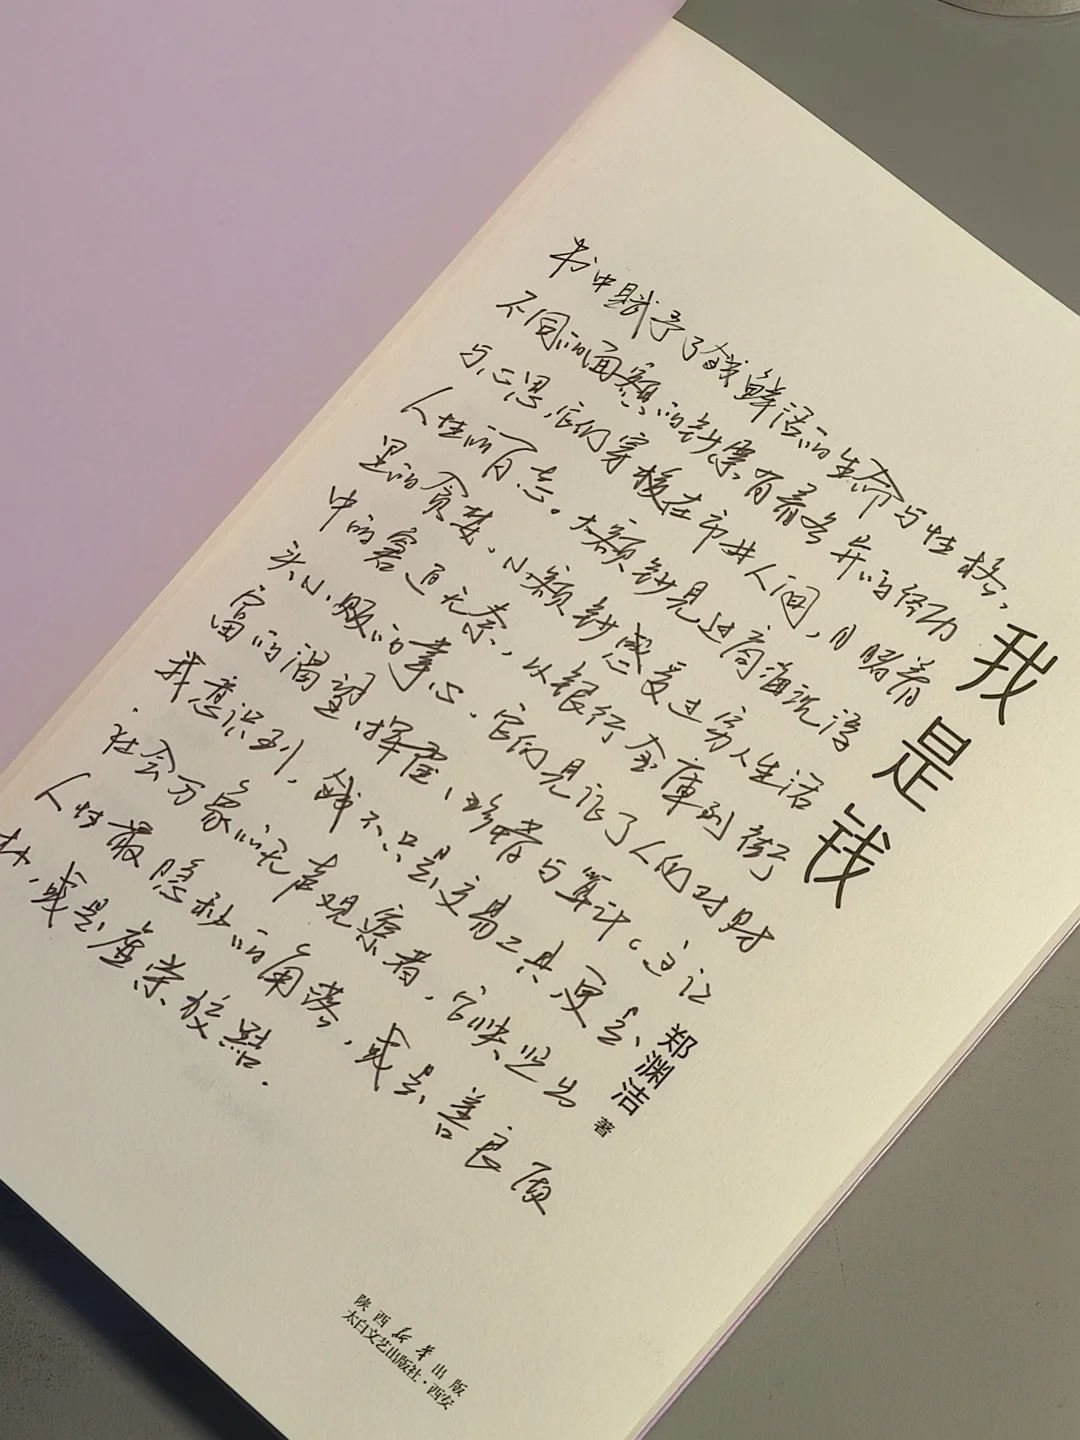 书中赋予了钱鲜活的生命与性格，
不同的面额的钞票有着各异的经历
与心思，它们穿梭在市井人间，目睹着
人性百态。大额钞见过商海沉浮
里的贪婪，小额钞感受过穷人生活
中的窘迫无奈，从银行金库到街
头小贩的掌心，它们见证了人们对财
富的渴望、挥霍、珍惜与算计。这让
我意识到，钱不只是交易工具，更是
社会万象的无声观察者，它映照出
人性最隐秘的角落，或是善良质
朴，或是虚荣狡黠.
我是钱
郑渊洁 著
陕西新华出版
太白文艺出版社·西安